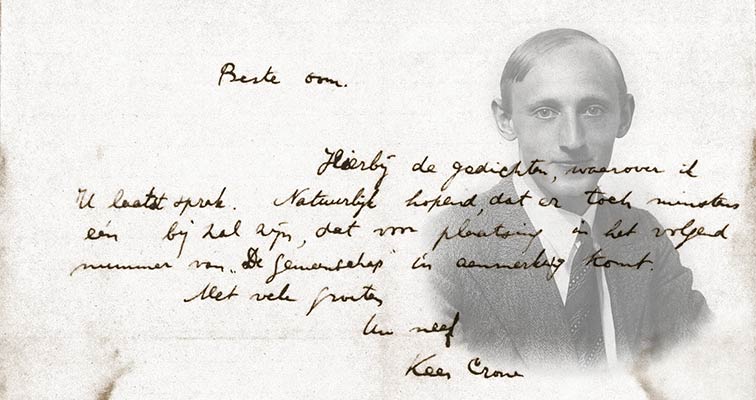 Beste oom.
Hierbij de gedichten, waarover ik
U laatst sprak. Natuurlijk hopend, dat er toch minstens
één bij zal zijn, dat voor plaatsing in het volgend
nummer van „De Gemeenschap" in aanmerking komt.
Met vele groeten
Uw neef
Kees Crone